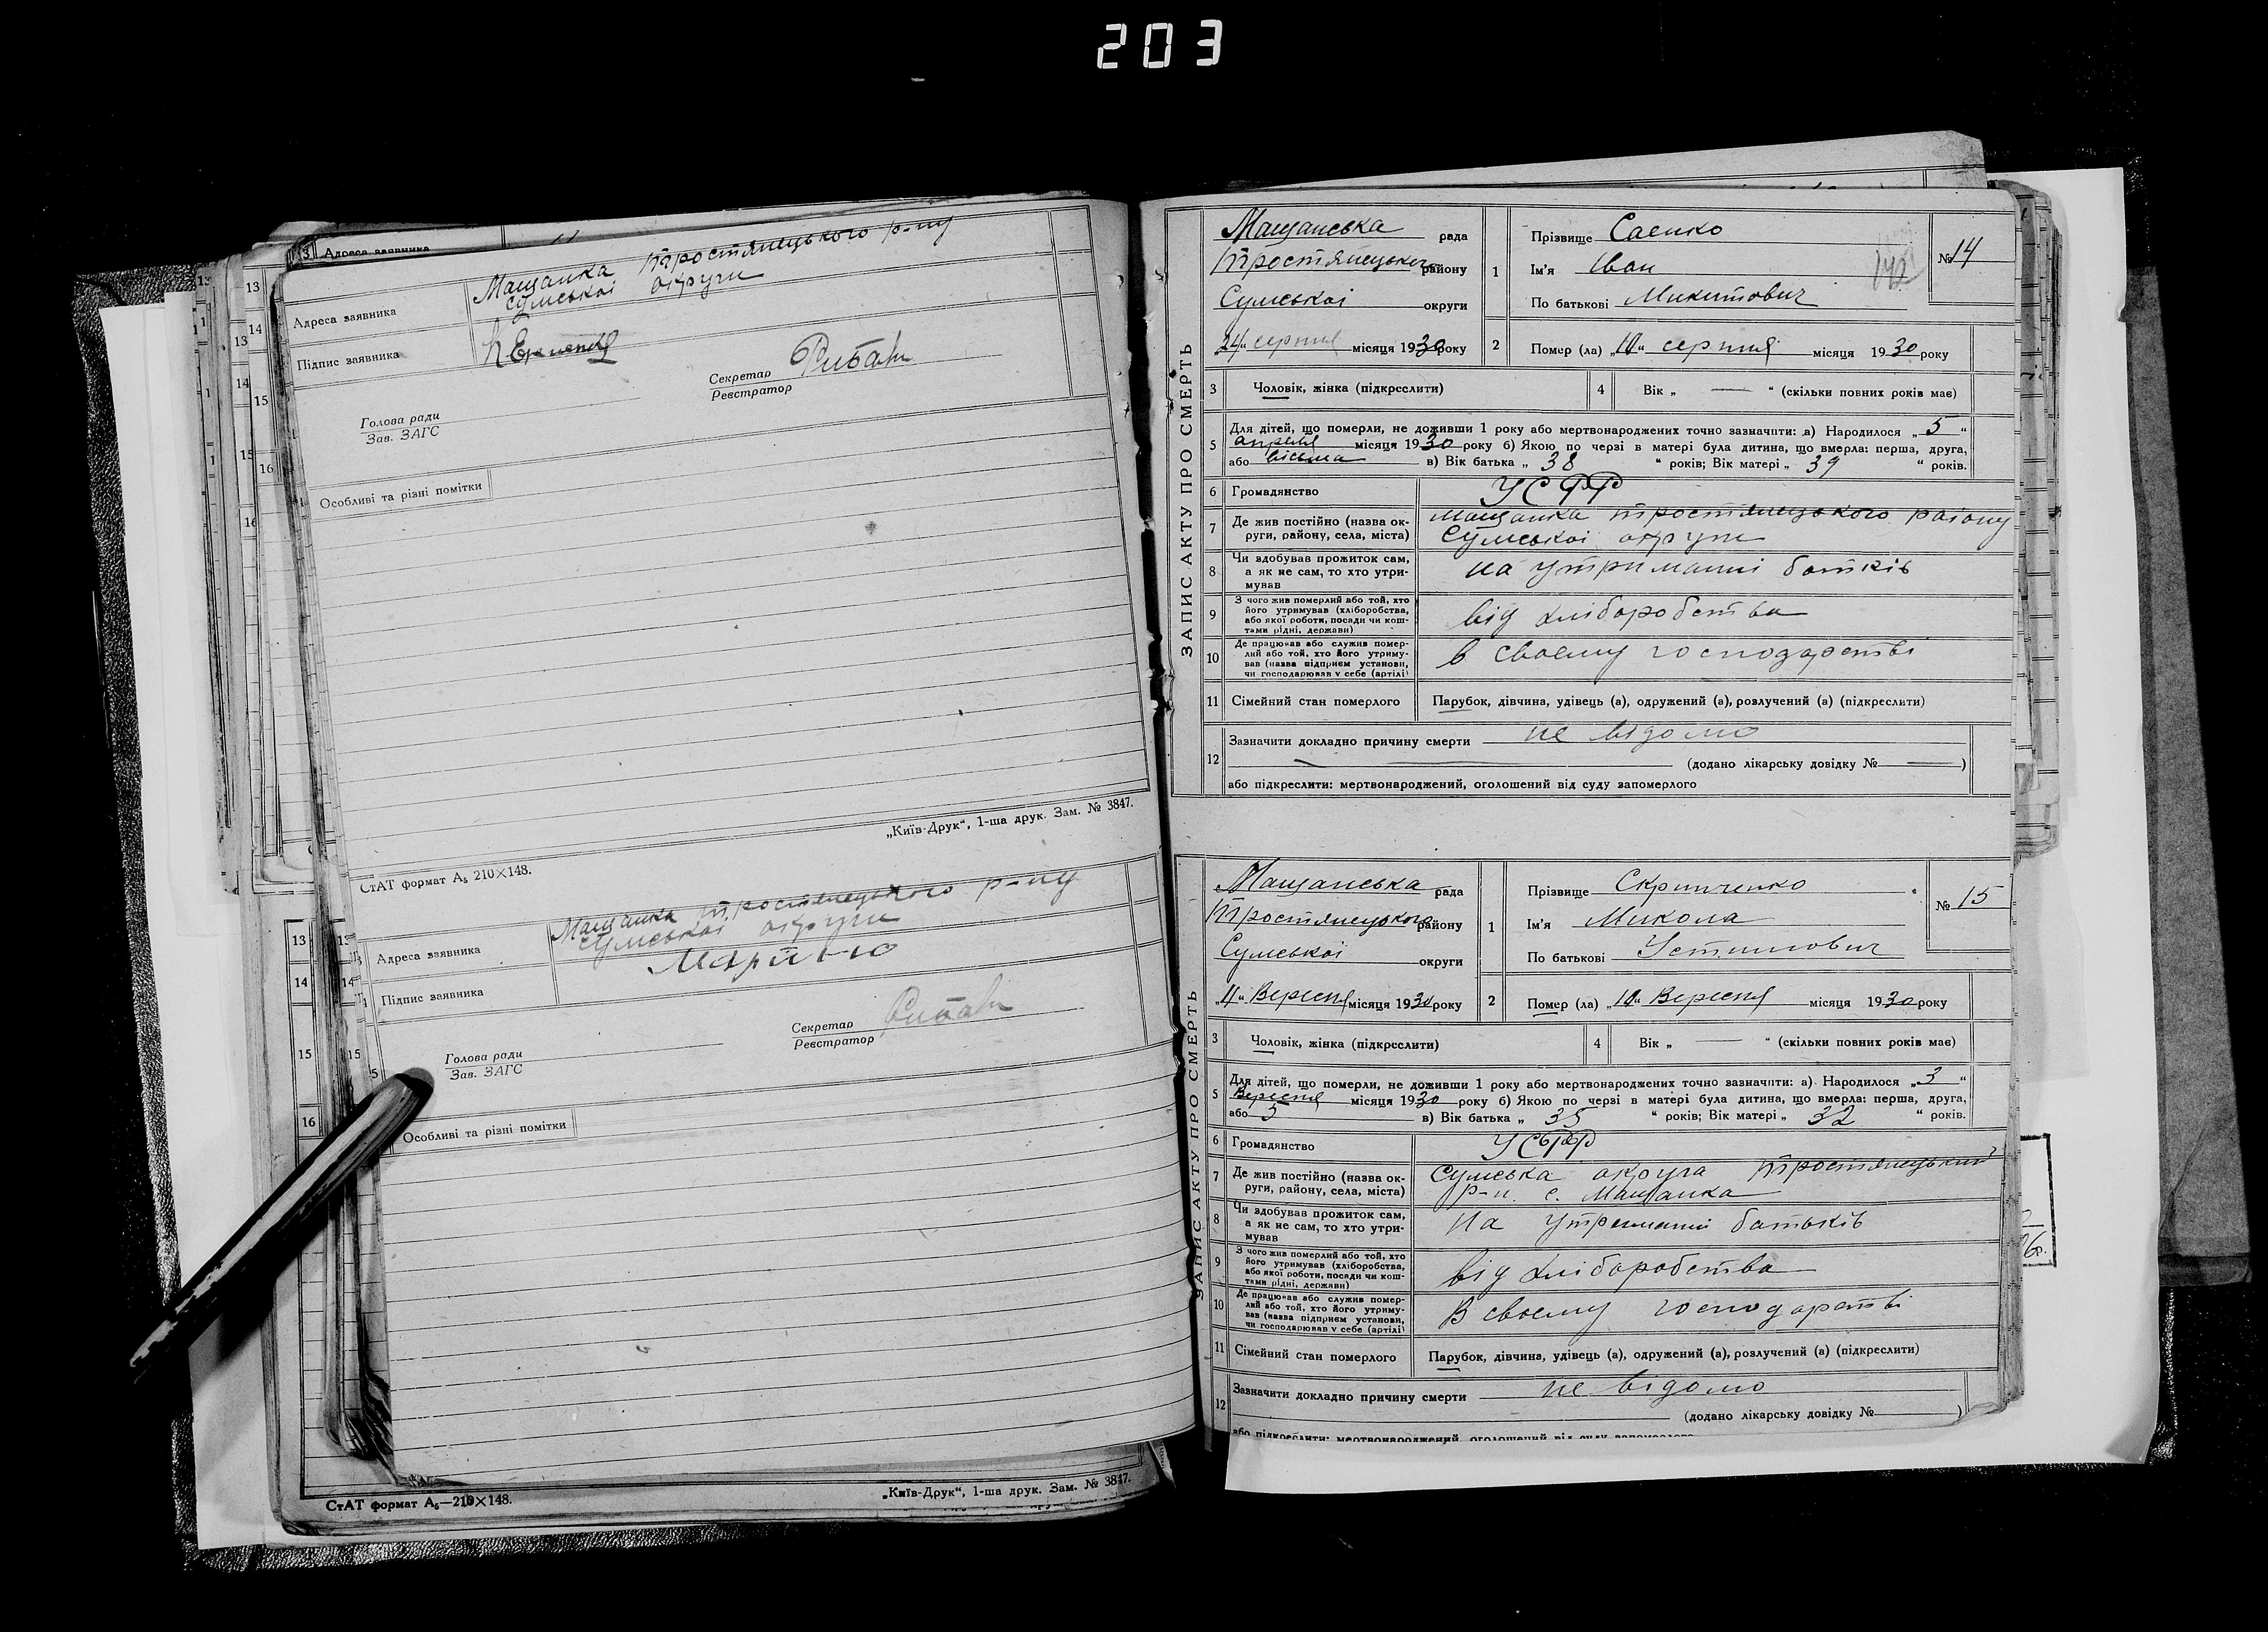 203
3 Адреса заявника
Адреса заявника Мащанка Тростянецького р-ну
Сумської округи
Підпис заявника
Секретар
Реєстратор
Голова ради
Зав. ЗАГС
Особливі та різні помітки
„Київ-Друк“, 1-ша друк. Зам. № 3847.
СтАТ формат А₅ 210×148.
Адреса заявника Мащанка тростянецького р-ну
Сумської округи
Підпис заявника
Секретар
Реєстратор
Голова ради
Зав. ЗАГС
Особливі та різні помітки
СтАТ формат А₅—210×148.
„Київ-Друк“, 1-ша друк. Зам. № 3847.
ЗАПИС АКТУ ПРО СМЕРТЬ
Мащанська рада
Тростянецького району
Сумської округи
„24“ серпня місяця 1930 року
1 Прізвище Саєнко
Ім'я Іван
По батькові Микитович
№ 14
2 Помер (ла) „10“ серпня місяця 1930 року
3 Чоловік, жінка (підкреслити)
4 Вік „ — “ (скільки повних років має)
5 Для дітей, що померли, не доживши 1 року або мертвонароджених точно зазначити: а) Народилося „5“
апреля місяця 1930 року б) Якою по черзі в матері була дитина, що вмерла: перша, друга,
або вісьма в) Вік батька „ 38 “ років; Вік матері „ 39 “ років.
6 Громадянство УСРР
7 Де жив постійно (назва ок-
руги, району, села, міста)
Мащанка тростянецького району
Сумської округи
8 Чи здобував прожиток сам,
а як не сам, то хто утри-
мував
на утриманні батків
9 З чого жив померлий або той, хто
його утримував (хліборобства,
або якої роботи, посади чи кош-
тами рідні, держави)
від хліборобства
10 Де працював або служив помер-
лий або той, хто його утриму-
вав (назва підприєм установи,
чи господарював у себе (артілі)
в своєму господарстві
11 Сімейний стан померлого Парубок, дівчина, удівець (а), одружений (а), розлучений (а) (підкреслити)
12 Зазначити докладно причину смерти не відомо
(додано лікарську довідку № — )
або підкреслити: мертвонароджений, оголошений від суду запомерлого
ЗАПИС АКТУ ПРО СМЕРТЬ
Мащанська рада
Тростянецького району
Сумської округи
„11“ Вересня місяця 1930 року
1 Прізвище Скрипченко
Ім'я Микола
По батькові Устинович
№ 15
2 Помер (ла) „10“ Вересня місяця 1930 року
3 Чоловік, жінка (підкреслити)
4 Вік „ — “ (скільки повних років має)
5 Для дітей, що померли, не доживши 1 року або мертвонароджених точно зазначити: а) Народилося „3“
Вересня місяця 1930 року б) Якою по черзі в матері була дитина, що вмерла: перша, друга,
або 5 в) Вік батька „ 35 “ років; Вік матері „ 32 “ років.
6 Громадянство УСРР
7 Де жив постійно (назва ок-
руги, району, села, міста)
Сумська округа тростянецький
р-н. с. Мащанка
8 Чи здобував прожиток сам,
а як не сам, то хто утри-
мував
на утриманні батьків
9 З чого жив померлий або той, хто
його утримував (хліборобства,
або якої роботи, посади чи кош-
тами рідні, держави)
від хліборобства
10 Де працював або служив помер-
лий або той, хто його утриму-
вав (назва підприєм установи,
чи господарював у себе (артілі)
В своєму господарстві
11 Сімейний стан померлого Парубок, дівчина, удівець (а), одружений (а), розлучений (а) (підкреслити)
12 Зазначити докладно причину смерти не відомо
(додано лікарську довідку № )
або підкреслити: мертвонароджений, оголошений від суду запомерлого